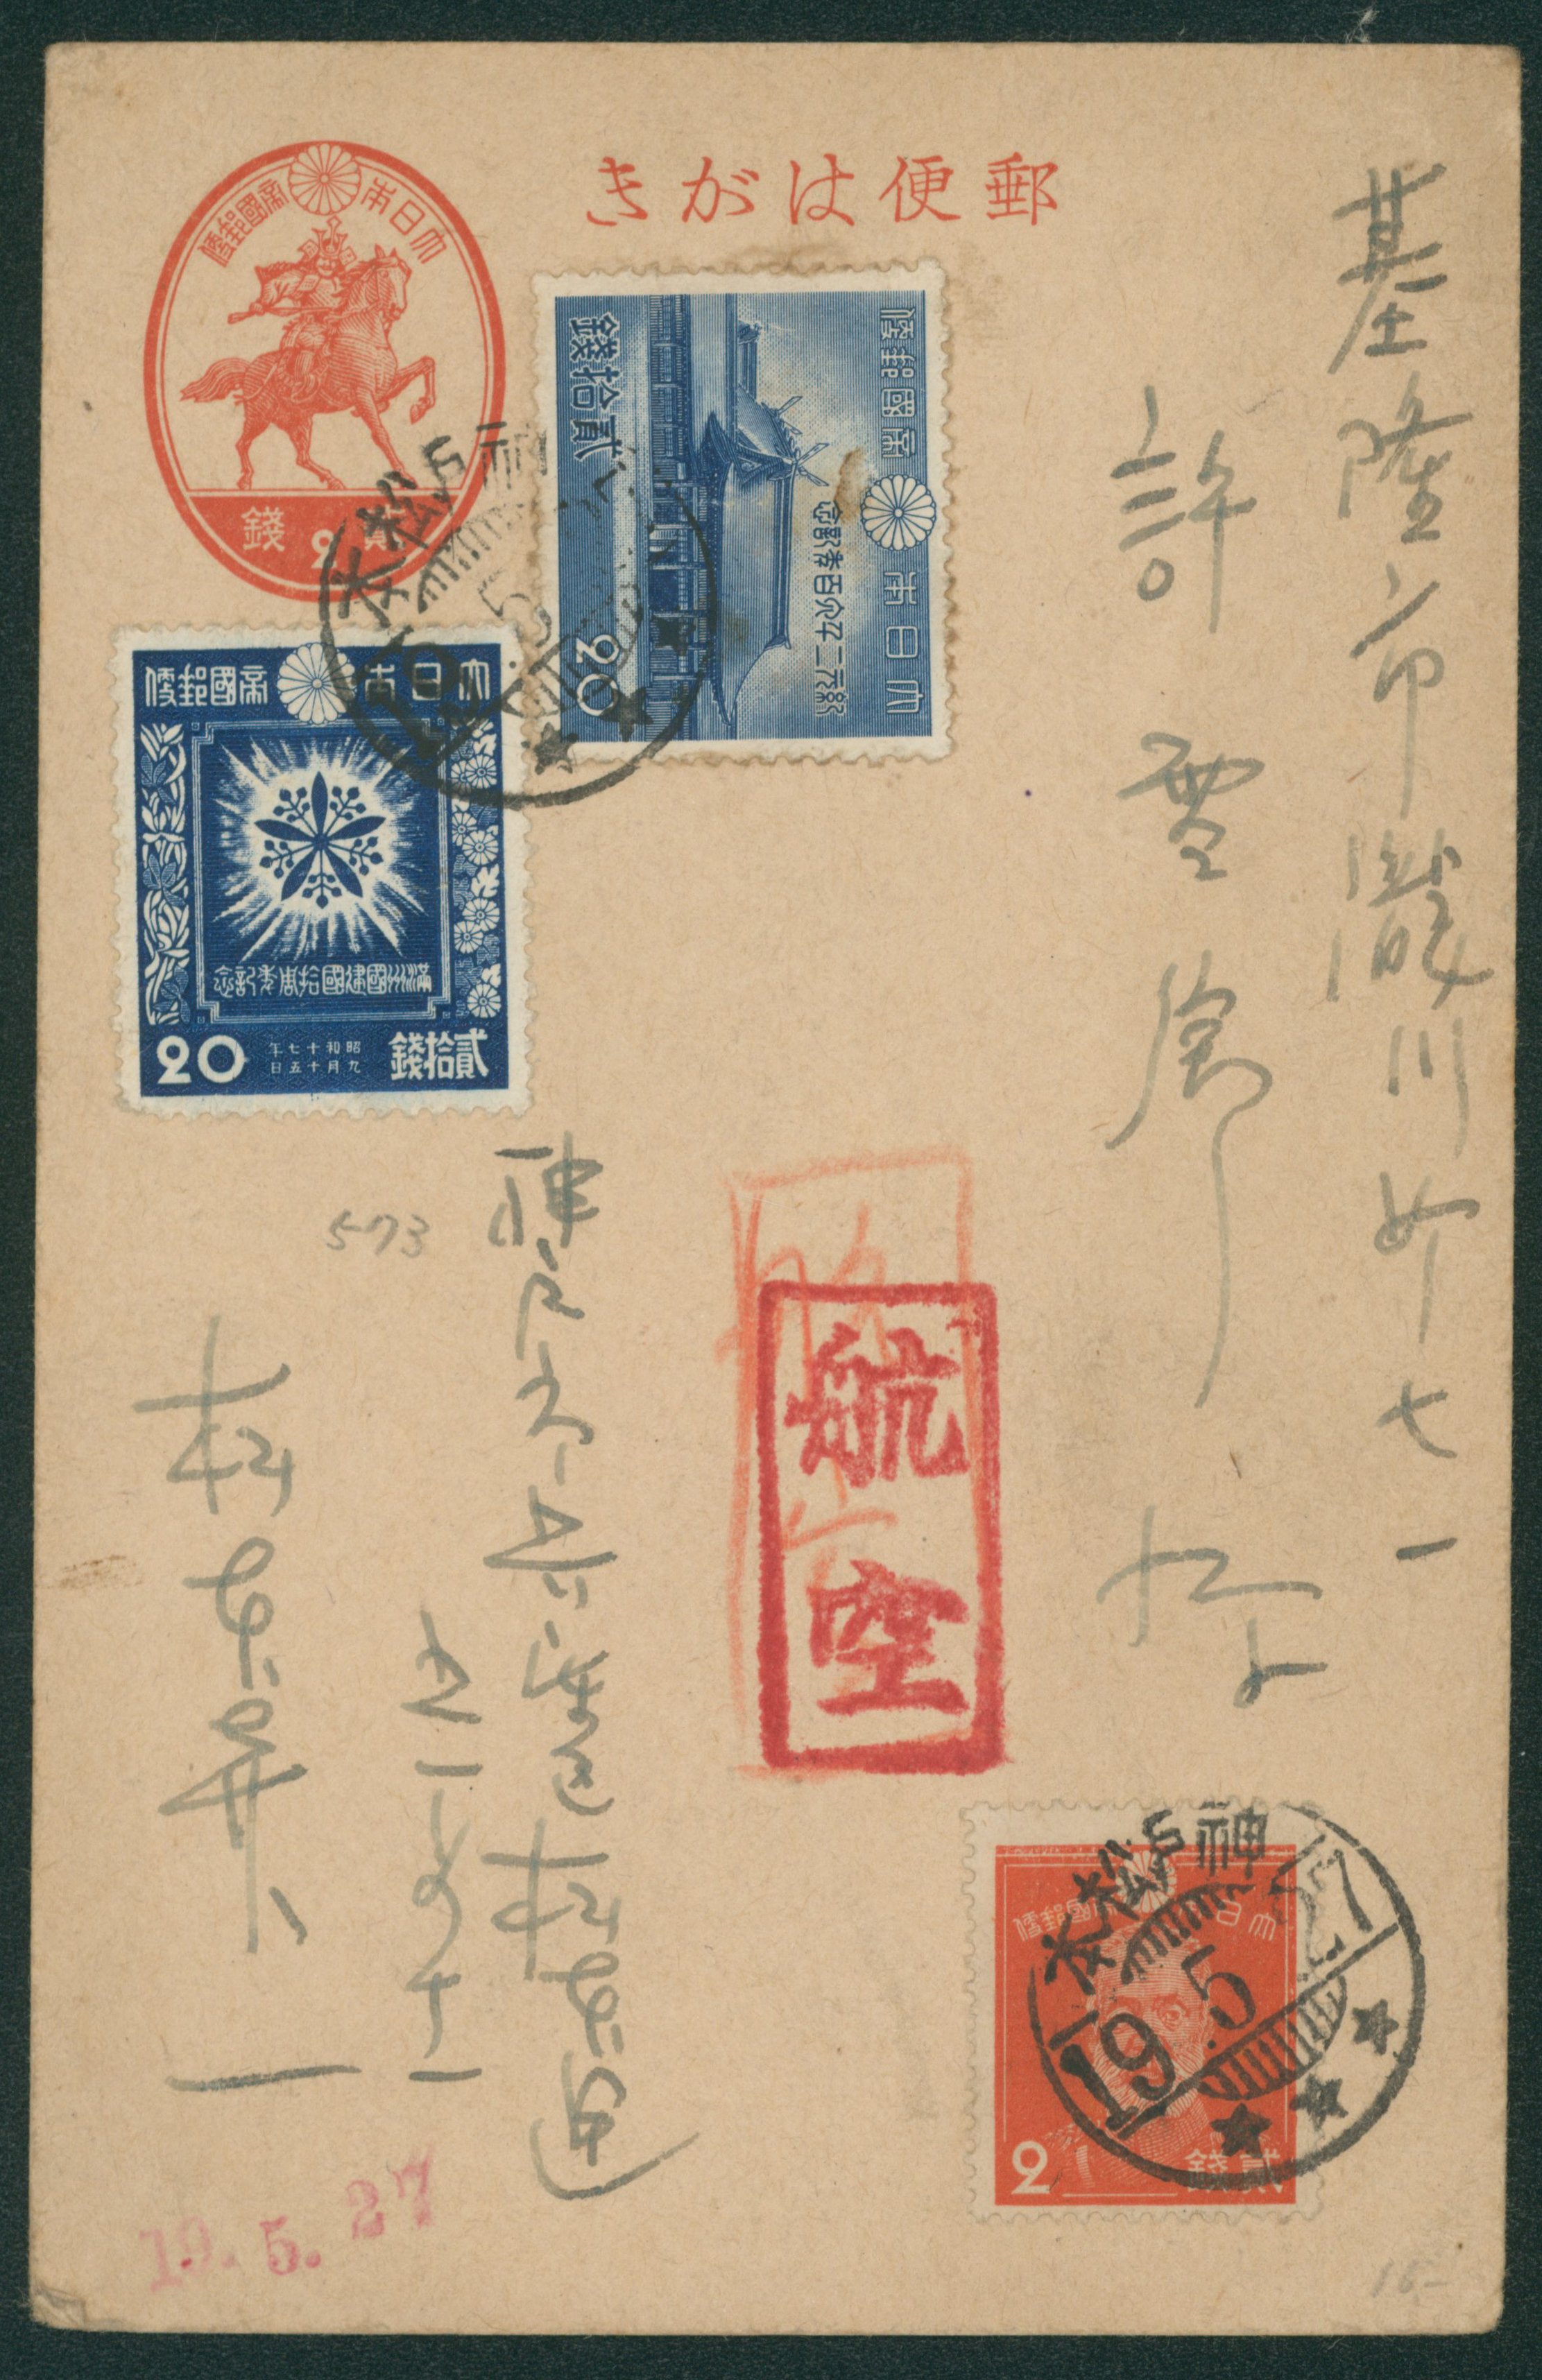 郵便はがき
大日本帝國郵便
貳 2 錢
大日本帝國郵便
紀元二千六百年記念
貳拾錢
20
大日本帝國郵便
滿洲國建國拾周年記念
昭和十七年
九月十五日
貳拾錢
20
神戸松本
19. 5.
基隆市瀧川町七一
許
573
航空
神戸市兵庫區松本通
松本昇一
大日本帝國郵便
2
貳錢
神戸松本
19. 5. 27
19. 5. 27
16-